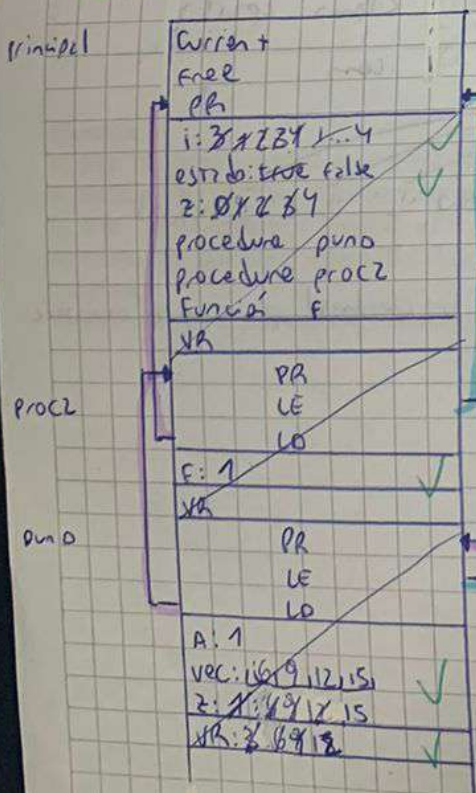 principal
Current
Free
PR
i: 3 1 2 3 4 1...4
estado: true false
z: 0 1 2 3 4
procedure puno
procedure proc2
Función F
VR
Proc2
PR
LE
LD
F: 1
VR
puno
PR
LE
LD
A: 1
vec: 6, 9, 12, 15,
z: 1: 6 9 12 15
VR: 3 6 9 12